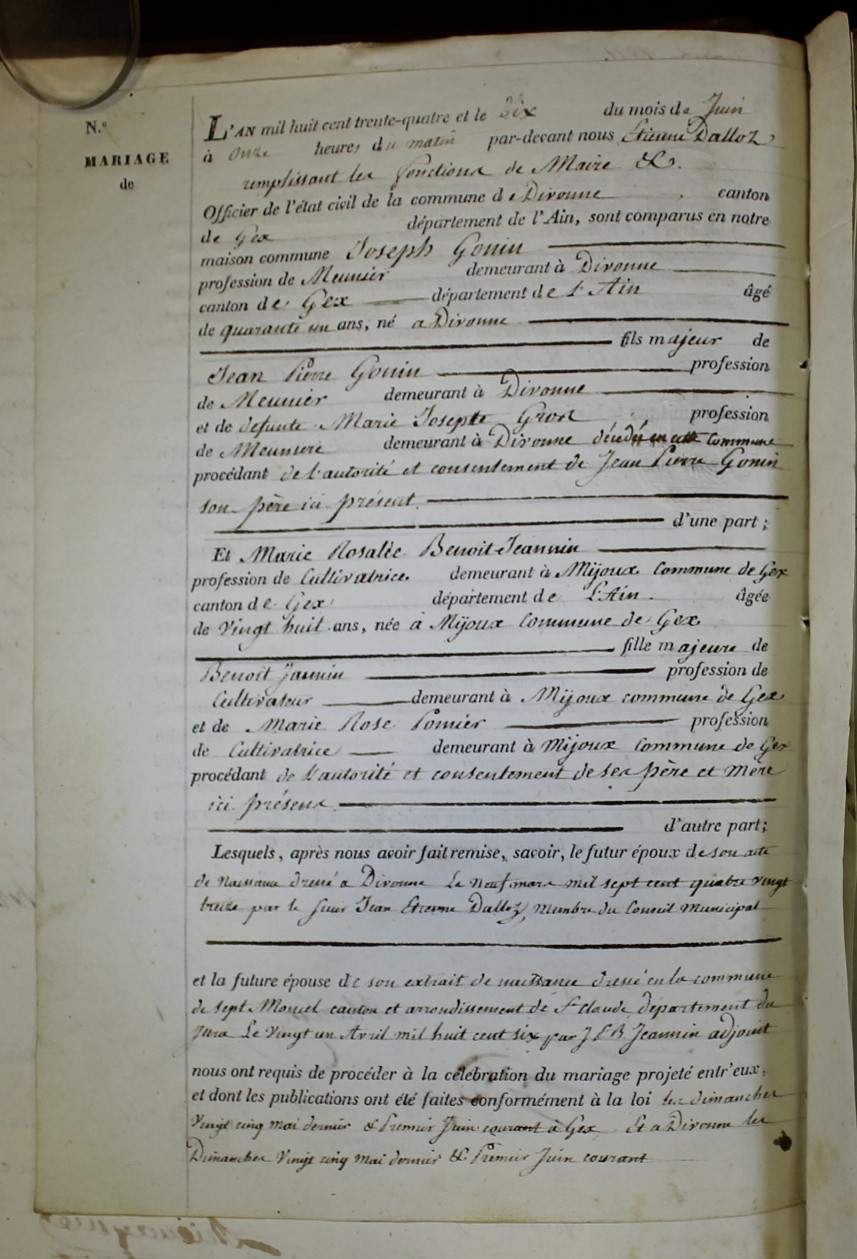 N.o
MARIAGE
de
L'AN mil huit cent trente-quatre et le Dix du mois de Juin
à Onze heures du matin par-devant nous Etienne Dalloz
remplissant les fonctions de Maire &.
Officier de l'état civil de la commune de Divonne, canton
de Gex département de l'Ain, sont comparus en notre
maison commune Joseph Gonin
profession de Meunier demeurant à Divonne
canton de Gex département de l'Ain âgé
de quarante un ans, né a Divonne
fils majeur de
Jean Pierre Gonin profession
de Meunier demeurant à Divonne
et de defunte Marie Josephte profession
de Meuniere demeurant à Divonne décédée en cette commune
procédant de l'autorité et consentement de Jean Pierre Gonin
son père ici présent.
d'une part;
Et Marie Rosalie Benoit-Jeannin
profession de Cultivatrice. demeurant à Mijoux Commune de Gex
canton de Gex département de l'Ain. âgée
de Vingt huit ans, née à Mijoux Commune de Gex
fille majeure de
Benoit Jannin profession de
Cultivateur demeurant à Mijoux commune de Gex
et de Marie Rose profession
de Cultivatrice demeurant à Mijoux Commune de Gex
procédant de l'autorité et consentement de ses père et Mère
ici présens.
d'autre part;
Lesquels, après nous avoir fait remise, savoir, le futur époux de son acte
de Naissance dressé a Divonne Le Neuf mars mil sept cent quatre vingt
treize par le sieur Jean Etienne Dalloz, Membre du Conseil Municipal
et la future épouse de son extrait de naissance dressé en la commune
de Sept Moncel canton et arrondissement de St Claude, département du
Jura Le Vingt un Avril mil huit cent six par J F B Jeannin adjoint
nous ont requis de procéder à la célébration du mariage projeté entr'eux,
et dont les publications ont été faites conformément à la loi les dimanches
Vingt cinq mai dernier & Premier Juin courant à Gex, Et a Divonne les
Dimanches Vingt cinq mai dernier & Premier Juin courant